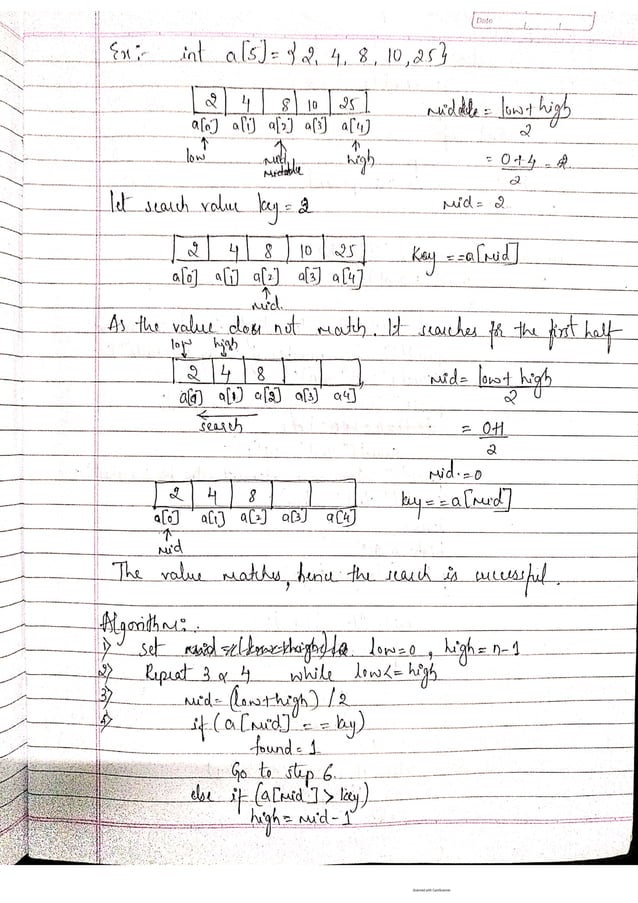 Date
Ex:- int a[5] = {2, 4, 8, 10, 25}
2 4 8 10 25
a[0] a[1] a[2] a[3] a[4]
low mid high
Middle = low + high
2
= 0+4 = 2
2
Mid = 2
let search value key = 2
2 4 8 10 25
a[0] a[1] a[2] a[3] a[4]
mid.
Key == a[Mid]
As the value does not match. It searches for the first half
low high
2 4 8
a[0] a[1] a[2] a[3] a[4]
search
Mid = low + high
2
= 0+1
2
Mid = 0
2 4 8
a[0] a[1] a[2] a[3] a[4]
Mid
key == a[Mid]
The value matches, hence the search is successful.
Algorithm:-
1) set low=0, high = n-1
2) Repeat 3 & 4 while low <= high
3) Mid = (low+high) / 2
4) if (a[Mid] == key)
found = 1
Go to step 6.
else if (a[Mid] > key)
high = Mid - 1
Scanned with CamScanner